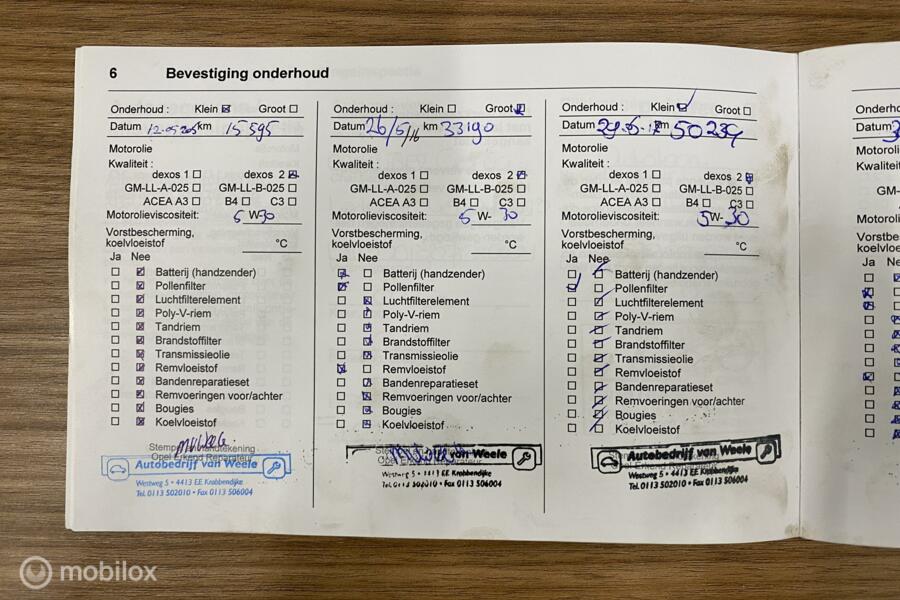 6 Bevestiging onderhoud
Onderhoud : Klein Groot
Datum 12-05-2015 km 15595
Motorolie
Kwaliteit :
dexos 1 dexos 2
GM-LL-A-025 GM-LL-B-025
ACEA A3 B4 C3
Motorolieviscositeit: 5 W-30
Vorstbescherming,
koelvloeistof °C
Ja Nee
Batterij (handzender)
Pollenfilter
Luchtfilterelement
Poly-V-riem
Tandriem
Brandstoffilter
Transmissieolie
Remvloeistof
Bandenreparatieset
Remvoeringen voor/achter
Bougies
Koelvloeistof
Stempel Handtekening
Opel Erkend Reparateur
Autobedrijf van Weele
Westweg 5 • 4413 EE Krabbendijke
Tel. 0113 502010 • Fax 0113 506004
Onderhoud : Klein Groot
Datum 26/5/16 km 33190
Motorolie
Kwaliteit :
dexos 1 dexos 2
GM-LL-A-025 GM-LL-B-025
ACEA A3 B4 C3
Motorolieviscositeit: 5 W- 30
Vorstbescherming,
koelvloeistof °C
Ja Nee
Batterij (handzender)
Pollenfilter
Luchtfilterelement
Poly-V-riem
Tandriem
Brandstoffilter
Transmissieolie
Remvloeistof
Bandenreparatieset
Remvoeringen voor/achter
Bougies
Koelvloeistof
Opel Erkend Reparateur
van Weele
Westweg 5 • 4413 EE Krabbendijke
Tel. 0113 502010 • Fax 0113 506004
Onderhoud : Klein Groot
Datum 29-05-17 km 50239
Motorolie
Kwaliteit :
dexos 1 dexos 2
GM-LL-A-025 GM-LL-B-025
ACEA A3 B4 C3
Motorolieviscositeit: 5W-30
Vorstbescherming,
koelvloeistof °C
Ja Nee
Batterij (handzender)
Pollenfilter
Luchtfilterelement
Poly-V-riem
Tandriem
Brandstoffilter
Transmissieolie
Remvloeistof
Bandenreparatieset
Remvoeringen voor/achter
Bougies
Koelvloeistof
Autobedrijf van Weele
Westweg 5 • 4413 EE Krabbendijke
Tel. 0113 502010 • Fax 0113 506004
Onderho
Datum
Motoroli
Kwaliteit
GM-
Motoroli
Vorstbe
koelvloe
Ja Ne
mobilox